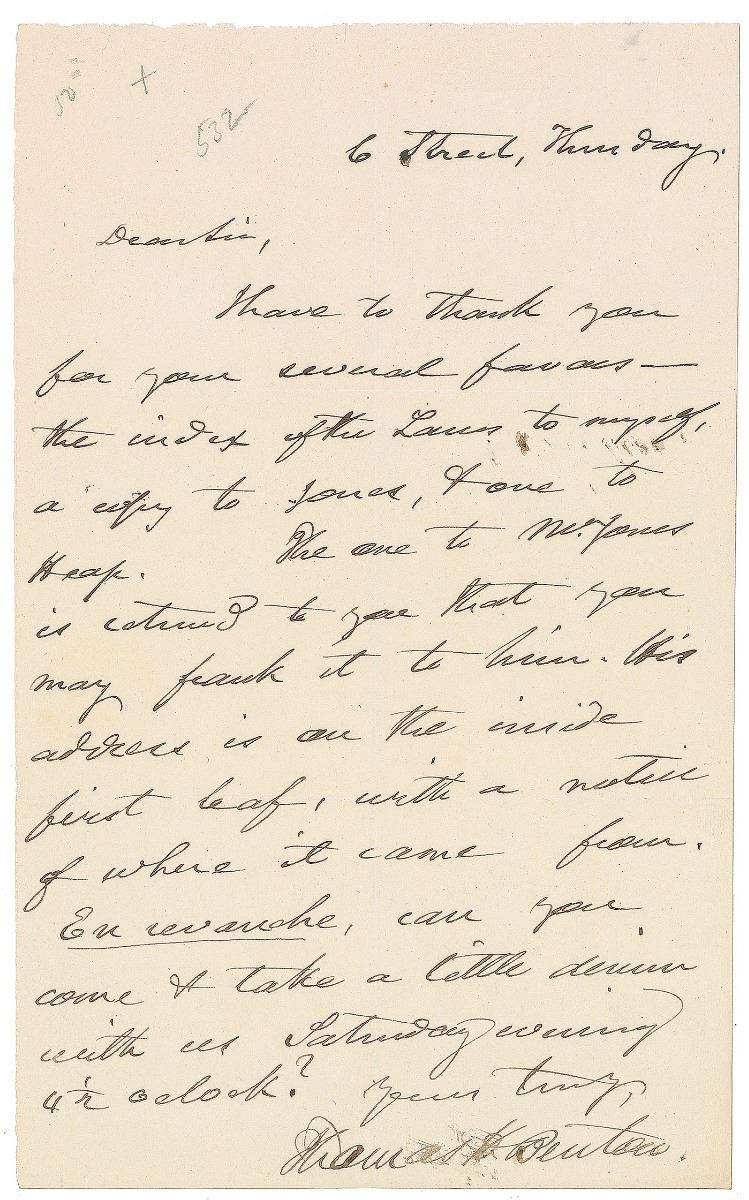 50 00
+
532
C Street, Thursday.
Dear Sir,
I have to thank you
for your several favors —
the index of the Laws to myself,
a copy to Jones, & one to
Heap. The one to Mr. Jones
is returned to you that you
may frank it to him. His
address is on the inside
first leaf, with a notice
of where it came from.
En revanche, can you
come & take a little dinner
with us Saturday evening
4 1/2 oclock? Yours truly,
Thomas H Benton.